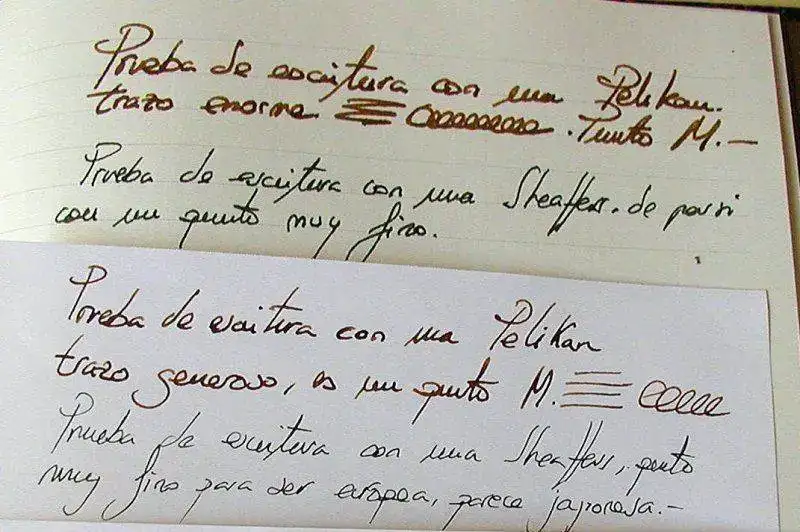 Prueba de escritura con una Pelikan.
trazo enorme. Punto M.—
Prueba de escritura con una Sheaffers. de
con un punto muy fino.
Prueba de escritura con una Pelikan
trazo generoso, es un punto M.
Prueba de escritura con una Sheaffers, punto
muy fino para ser europea, parece japonesa.—